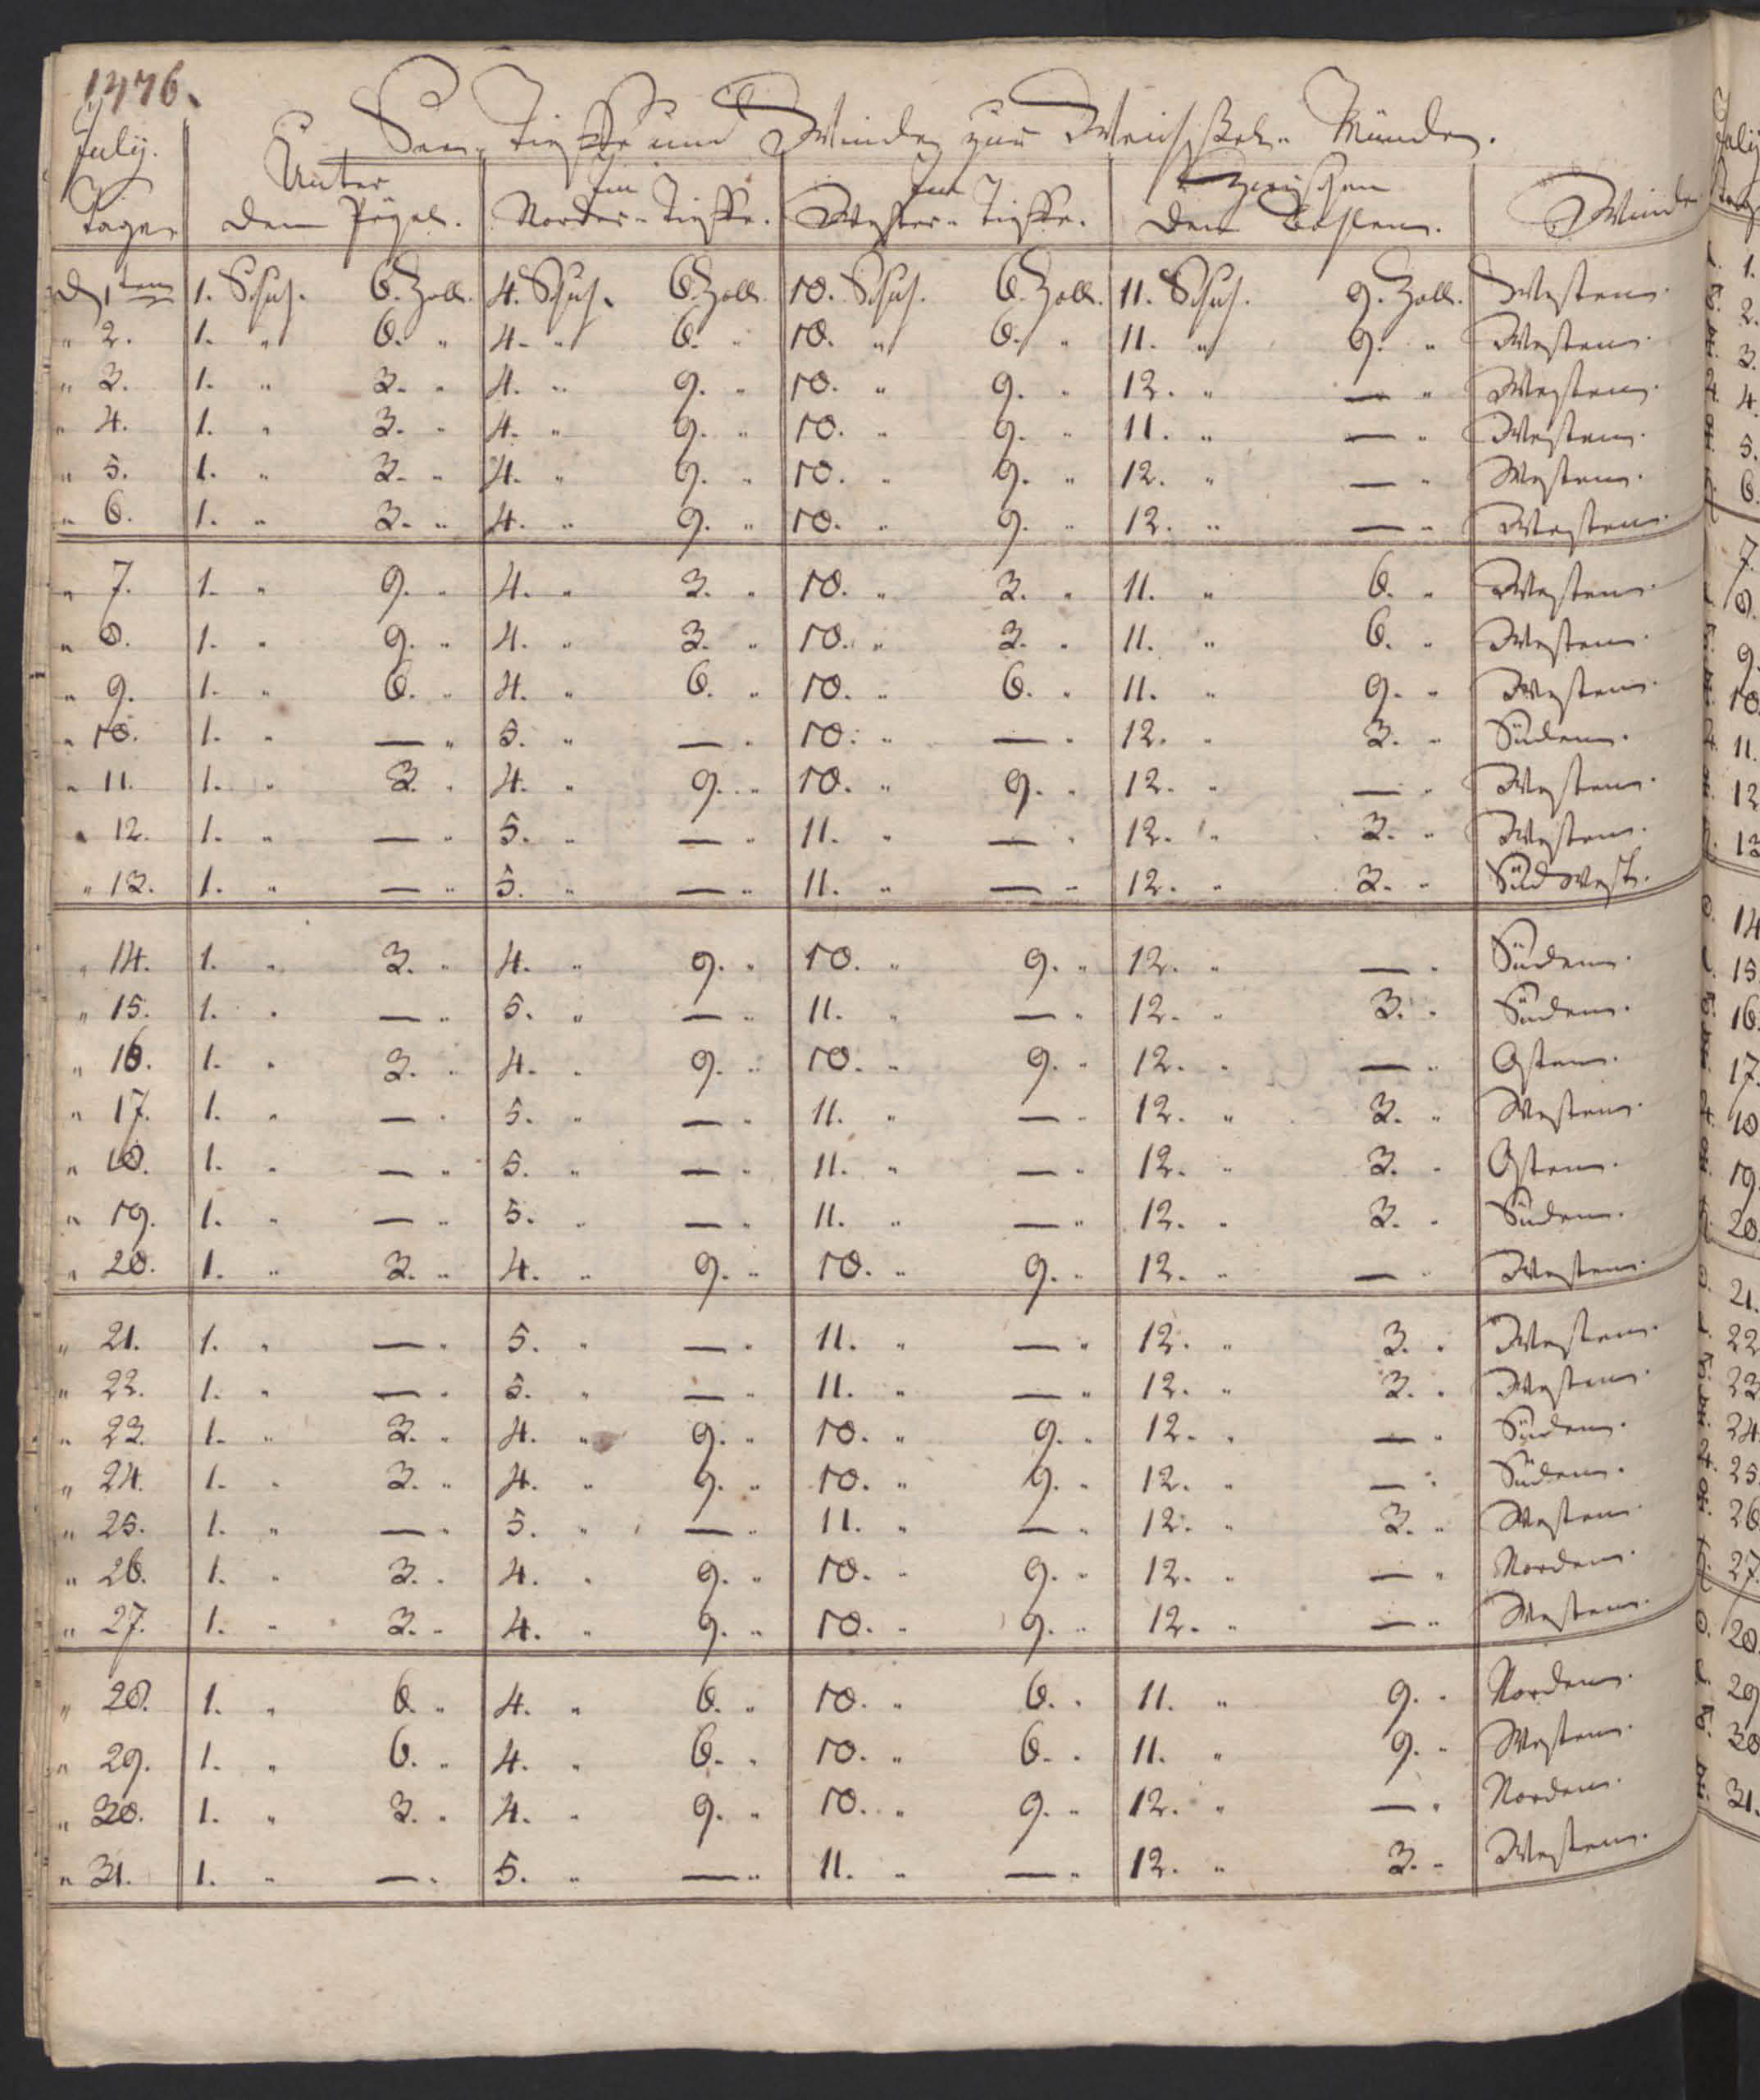 1776.
July. See-Tieffe und Winde zur Weichsel-Münde.
Tage. Unter dem Pegel. Im Norder-Tieffe. Im Wester-Tieffe. Zwischen den Winde
D 1ten 1. Schuh. 6. Zoll. 4. Schuh. 6. Zoll. 10. Schuh. 6. Zoll. 11. Schuh. 9. Zoll. Westen.
" 2. 1. " 6. " 4. " 6. " 10. " 6. " 11. " 9. " Westen.
" 3. 1. " 3. " 4. " 9. " 10. " 9. " 12. " — " Westen.
" 4. 1. " 3. " 4. " 9. " 10. " 9. " 11. " — " Westen.
" 5. 1. " 3. " 4. " 9. " 10. " 9. " 12. " — " Westen.
" 6. 1. " 3. " 4. " 9. " 10. " 9. " 12. " — " Westen.
" 7. 1. " 9. " 4. " 3. " 10. " 3. " 11. " 6. " Westen.
" 8. 1. " 9. " 4. " 3. " 10. " 3. " 11. " 6. " Westen.
" 9. 1. " 6. " 4. " 6. " 10. " 6. " 11. " 9. " Westen.
" 10. 1. " — " 5. " — " 10. " — " 12. " 3. " Süden.
" 11. 1. " 3. " 4. " 9. " 10. " 9. " 12. " — " Westen.
" 12. 1. " — " 5. " — " 11. " — " 12. " 3. " Westen.
" 13. 1. " — " 5. " — " 11. " — " 12. " 3. " Südwest.
" 14. 1. " 3. " 4. " 9. " 10. " 9. " 12. " — " Süden.
" 15. 1. " — " 5. " — " 11. " — " 12. " 3. " Süden.
" 16. 1. " 3. " 4. " 9. " 10. " 9. " 12. " — " Osten.
" 17. 1. " — " 5. " — " 11. " — " 12. " 3. " Westen.
" 18. 1. " — " 5. " — " 11. " — " 12. " 3. " Osten.
" 19. 1. " — " 5. " — " 11. " — " 12. " 3. " Süden.
" 20. 1. " 3. " 4. " 9. " 10. " 9. " 12. " — " Westen.
" 21. 1. " — " 5. " — " 11. " — " 12. " 3. " Westen.
" 22. 1. " — " 5. " — " 11. " — " 12. " 3. " Westen.
" 23. 1. " 3. " 4. " 9. " 10. " 9. " 12. " — " Süden.
" 24. 1. " 3. " 4. " 9. " 10. " 9. " 12. " — " Süden.
" 25. 1. " — " 5. " — " 11. " — " 12. " 3. " Westen.
" 26. 1. " 3. " 4. " 9. " 10. " 9. " 12. " — " Norden.
" 27. 1. " 3. " 4. " 9. " 10. " 9. " 12. " — " Westen.
" 28. 1. " 6. " 4. " 6. " 10. " 6. " 11. " 9. " Norden.
" 29. 1. " 6. " 4. " 6. " 10. " 6. " 11. " 9. " Westen.
" 30. 1. " 3. " 4. " 9. " 10. " 9. " 12. " — " Norden.
" 31. 1. " — " 5. " — " 11. " — " 12. " 3. " Westen.